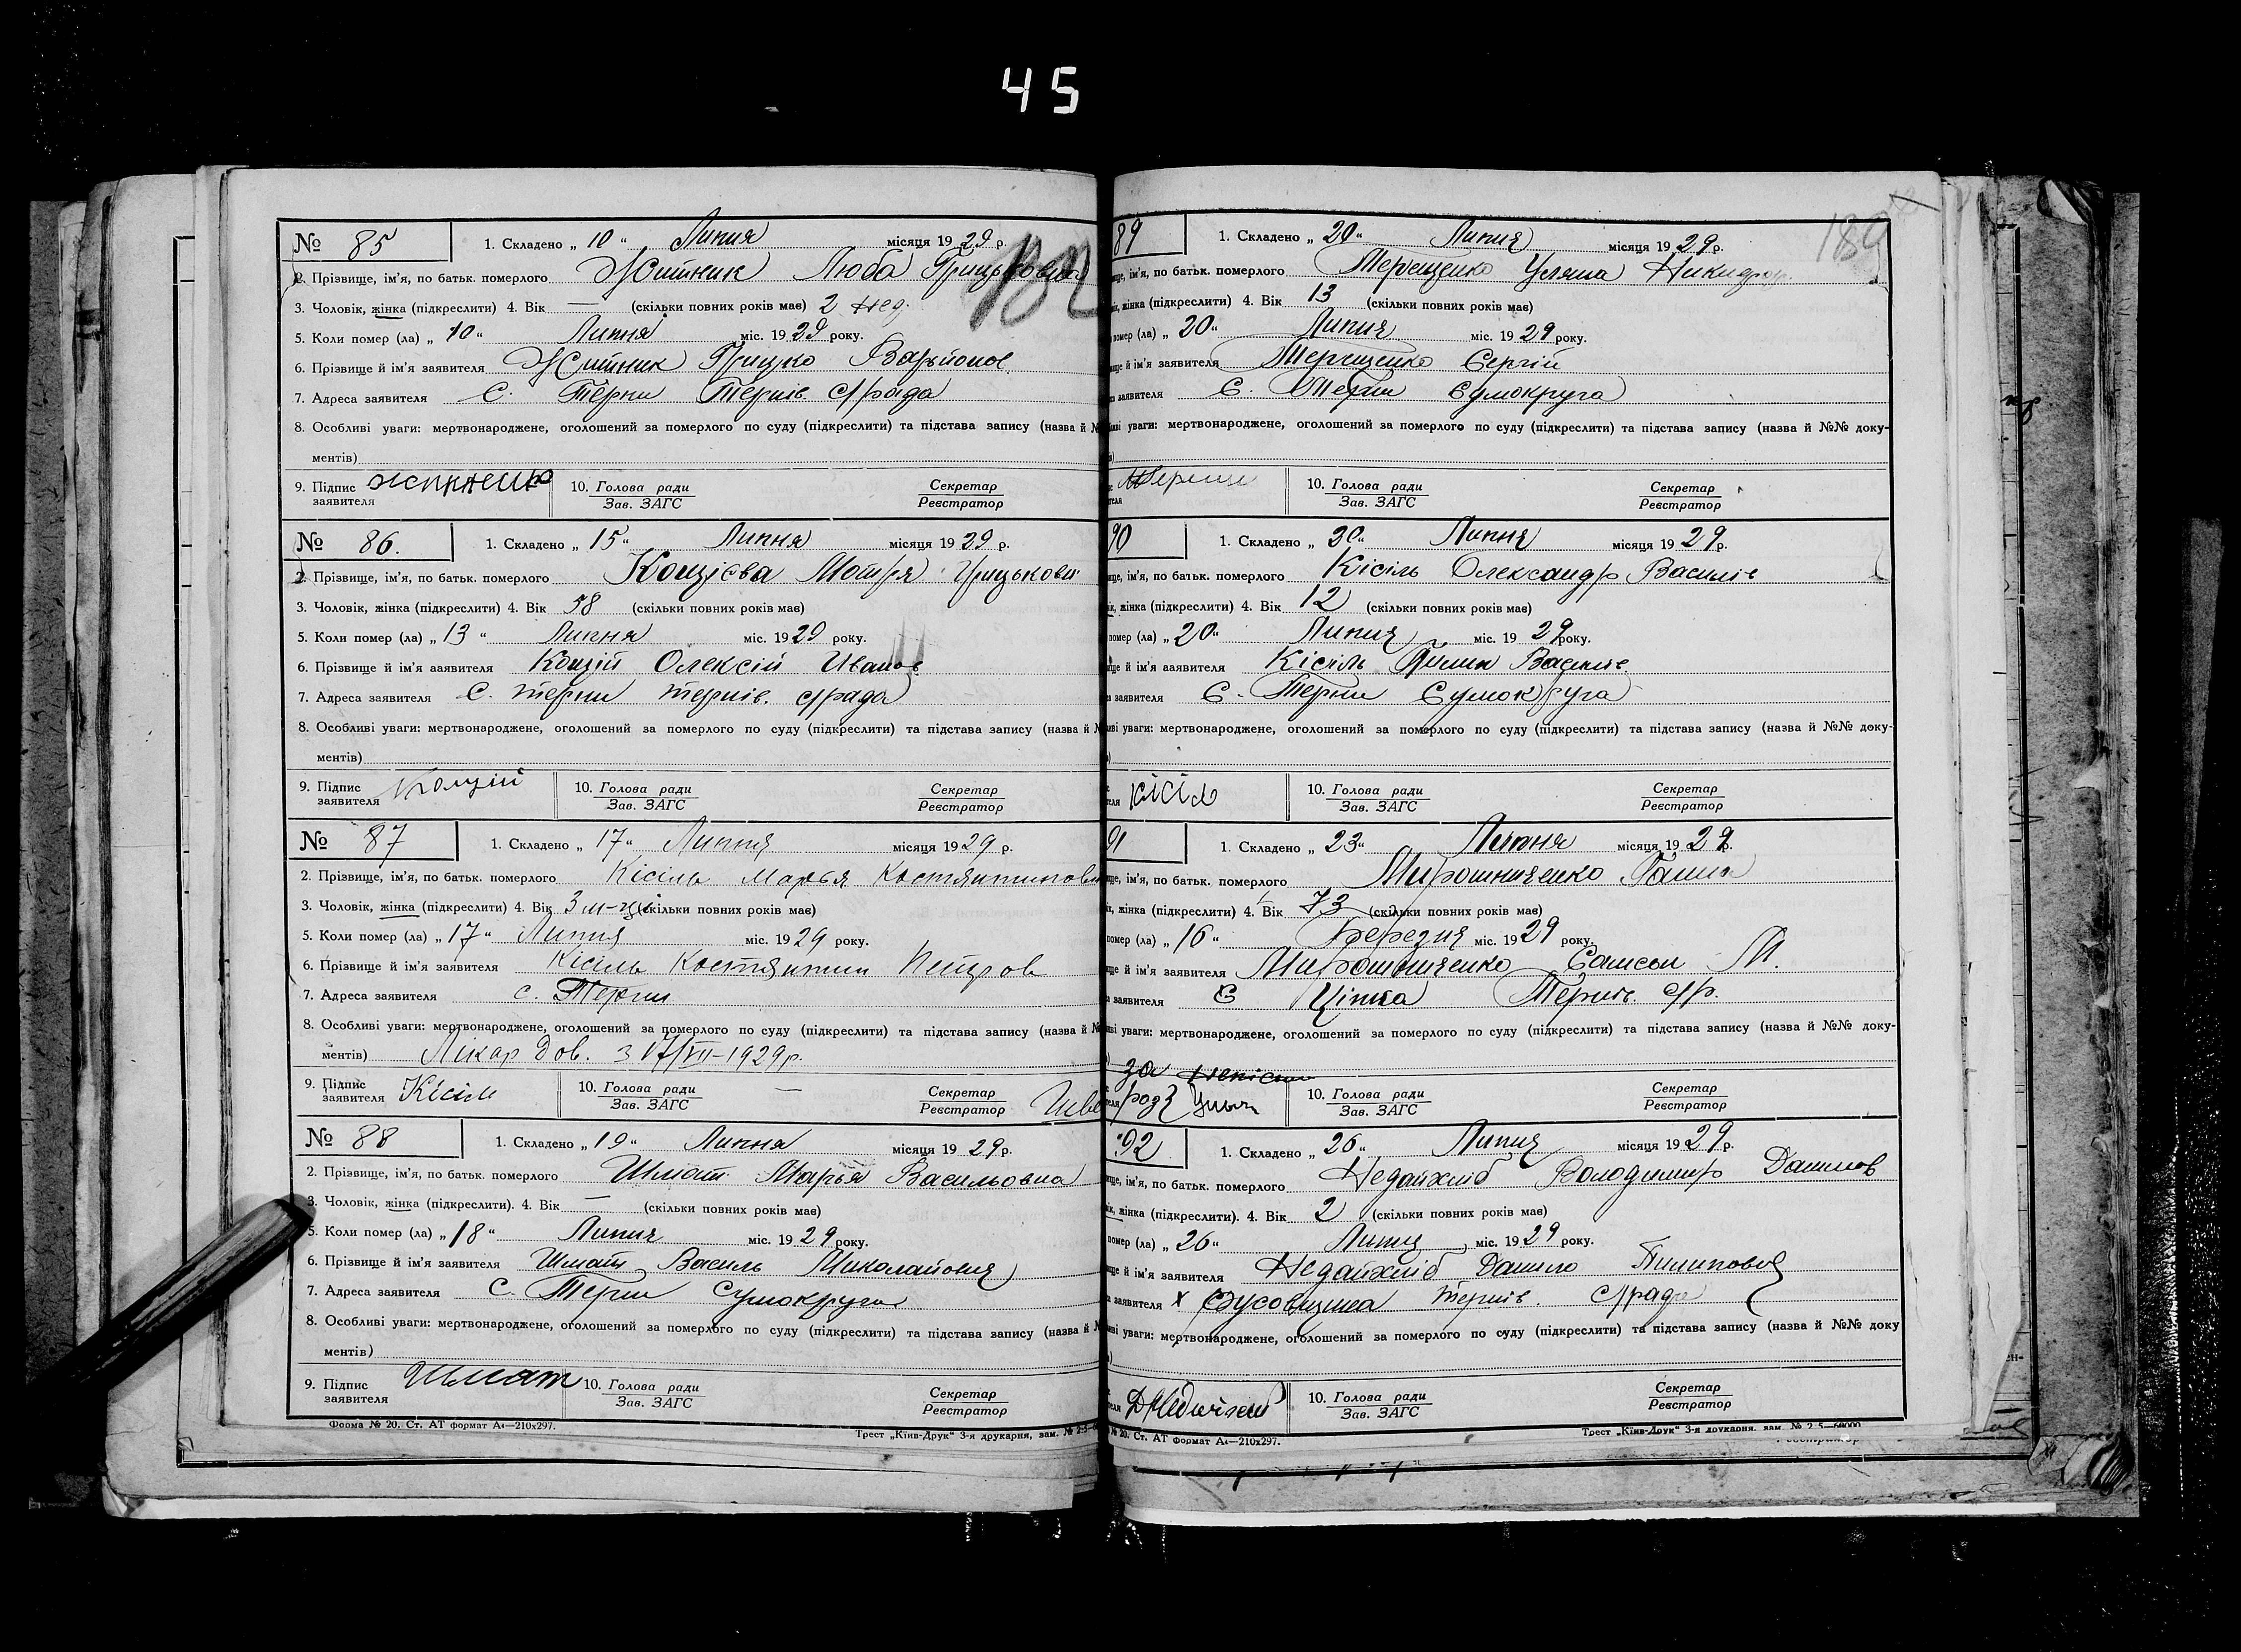 45
№ 85 1. Складено „ 10 “ Липня місяця 19 29 р.
2. Прізвище, ім'я, по батьк. померлого Житник Люба Грицьковна
3. Чоловік, жінка (підкреслити) 4. Вік — (скільки повних років має) 2 нед.
5. Коли помер (ла) „ 10 “ Липня міс. 19 29 року.
6. Прізвище й ім'я заявителя Житник Грицко
7. Адреса заявителя С. Терни Тернів. с/рада
8. Особливі уваги: мертвонароджене, оголошений за померлого по суду (підкреслити) та підстава запису (назва й №
ментів)
9. Підпис заявителя 10. Голова ради Секретар
Зав. ЗАГС Реєстратор
№ 86. 1. Складено „ 15 “ Липня місяця 19 29 р.
2. Прізвище, ім'я, по батьк. померлого Коцієва Мотря Грицькови
3. Чоловік, жінка (підкреслити) 4. Вік 58 (скільки повних років має)
5. Коли помер (ла) „ 13 “ Липня міс. 19 29 року.
6. Прізвище й ім'я заявителя Коцій Олексій Иванов
7. Адреса заявителя С. Терни Тернів. с/рада
8. Особливі уваги: мертвонароджене, оголошений за померлого по суду (підкреслити) та підстава запису (назва й №
ментів)
9. Підпис заявителя Коцій 10. Голова ради Секретар
Зав. ЗАГС Реєстратор
№ 87 1. Складено „ 17 “ Липня місяця 19 29 р.
2. Прізвище, ім'я, по батьк. померлого Кісіль Марья Костянтиновн
3. Чоловік, жінка (підкреслити) 4. Вік 3 м-ці (скільки повних років має)
5. Коли помер (ла) „ 17 “ Липня міс. 19 29 року.
6. Прізвище й ім'я заявителя Кісіль Костянтин Петров
7. Адреса заявителя с. Терни
8. Особливі уваги: мертвонароджене, оголошений за померлого по суду (підкреслити) та підстава запису (назва й №
ментів) Лікар Дов. з 17/VII-1929р.
9. Підпис заявителя Кісіль 10. Голова ради — Секретар
Зав. ЗАГС Реєстратор
№ 88 1. Складено „ 19 “ Липня місяця 19 29 р.
2. Прізвище, ім'я, по батьк. померлого Шмат Марья Васильовна
3. Чоловік, жінка (підкреслити). 4. Вік — (скільки повних років має)
5. Коли помер (ла) „ 18 “ Липня міс. 19 29 року.
6. Прізвище й ім'я заявителя Шмат Василь Миколайович
7. Адреса заявителя С. Терни Сумокруга
8. Особливі уваги: мертвонароджене, оголошений за померлого по суду (підкреслити) та підстава запису (назва й №
ментів)
9. Підпис заявителя Шмат 10. Голова ради Секретар
Зав. ЗАГС Реєстратор
Форма № 20. Ст. АТ формат А4—210х297. Трест „Київ-Друк“ 3-я друкарня, зам. №
189
89 1. Складено „ 20 “ Липня місяця 19 29 р.
ім'я, по батьк. померлого Терещенко Уляна Никифор.
жінка (підкреслити) 4. Вік 13 (скільки повних років має)
помер (ла) „ 20 “ Липня міс. 19 29 року.
й ім'я заявителя Терещенко Сергій
заявителя С. Терни Сумокруга
уваги: мертвонароджене, оголошений за померлого по суду (підкреслити) та підстава запису (назва й №№ доку-
Тереще 10. Голова ради Секретар
Зав. ЗАГС Реєстратор
90 1. Складено „ 20 “ Липня місяця 19 29 р.
ім'я, по батьк. померлого Кісіль Олександр Василів
жінка (підкреслити) 4. Вік 12 (скільки повних років має)
помер (ла) „ 20 “ Липня міс. 19 29 року.
й ім'я заявителя Кісіль Василів
заявителя С. Терни Сумокруга
уваги: мертвонароджене, оголошений за померлого по суду (підкреслити) та підстава запису (назва й №№ доку-
кісіл 10. Голова ради Секретар
Зав. ЗАГС Реєстратор
91 1. Складено „ 23 “ Липня місяця 19 29 р.
ім'я, по батьк. померлого Мирошниченко
жінка (підкреслити) 4. Вік 73 (скільки повних років має)
помер (ла) „ 16 “ Березня міс. 19 29 року.
й ім'я заявителя Мирошниченко Самсон М.
заявителя С Тернів. с/р.
уваги: мертвонароджене, оголошений за померлого по суду (підкреслити) та підстава запису (назва й №№ доку-
за
10. Голова ради Секретар
Зав. ЗАГС Реєстратор
92 1. Складено „ 26 “ Липня місяця 19 29 р.
ім'я, по батьк. померлого Недайхліб Володимир Данилов
жінка (підкреслити). 4. Вік 2 (скільки повних років має)
помер (ла) „ 26 “ Липня міс. 19 29 року.
й ім'я заявителя Недайхліб Данило Пилипович
заявителя х Тернів. с/рада
уваги: мертвонароджене, оголошений за померлого по суду (підкреслити) та підстава запису (назва й №№ доку
10. Голова ради Секретар
Зав. ЗАГС Реєстратор
№ 20. Ст. АТ формат А4—210х297. Трест „Київ-Друк“ 3-я друкарня. зам. №